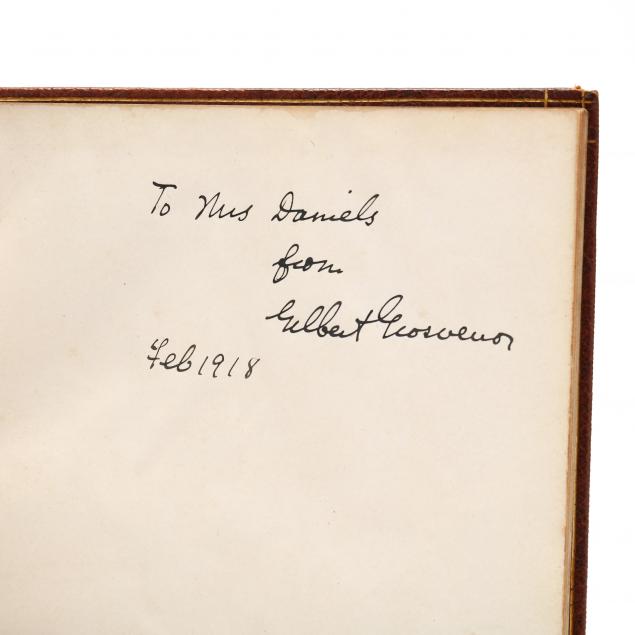 To Mrs Daniels
from
Gilbert Grosvenor
Feb 1918